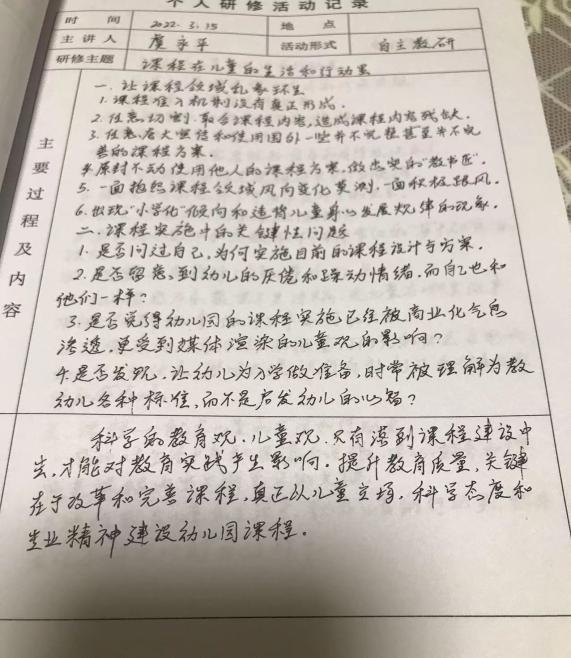 个人研修活动记录
时间 2022.3.15 地点
主讲人 虞永平 活动形式 自主教研
研修主题 课程在儿童的生活和行动里
主要过程及内容
一.让课程领域乱象环生
1.课程准入机制没有真正形成.
2.任意切割.取舍课程内容,造成课程内容残缺.
3.任意夸大宣传和使用国外一些并不完整甚至并不完
善的课程方案.
4.原封不动使用他人的课程方案,做忠实的"教书匠".
5.一面抱怨课程领域风向变化莫测,一面积极跟风.
6.出现"小学化"倾向和违背儿童身心发展规律的现象.
二.课程实施中的关键性问题
1.是否问过自己,为何实施目前的课程设计与方案.
2.是否留意到幼儿的厌倦和躁动情绪,而自己也和
他们一样?
3.是否觉得幼儿园的课程实施已经被商业化气息
渗透,更受到媒体渲染的儿童观的影响?
4.是否发现,让幼儿为入学做准备,时常被理解为教
幼儿各种标准,而不是启发幼儿的心智?
科学的教育观.儿童观.只有落到课程建设中
去,才能对教育实践产生影响.提升教育质量,关键
在于改革和完善课程,真正从儿童立场,科学态度和
专业精神建设幼儿园课程.